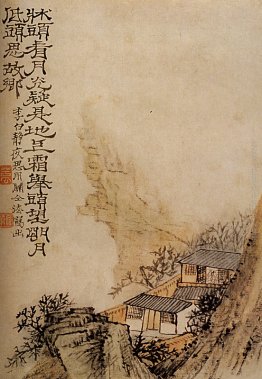 牀頭看月光疑是地上霜舉頭望朙月
低頭思故鄉
李白靜夜思用關仝法